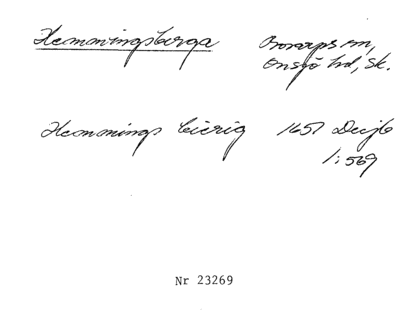 Hemmingsberga Bosarps sn,
Onsjö hd, Sk.
Hemmings bierig 1651 Decjb
1:569
Nr 23269